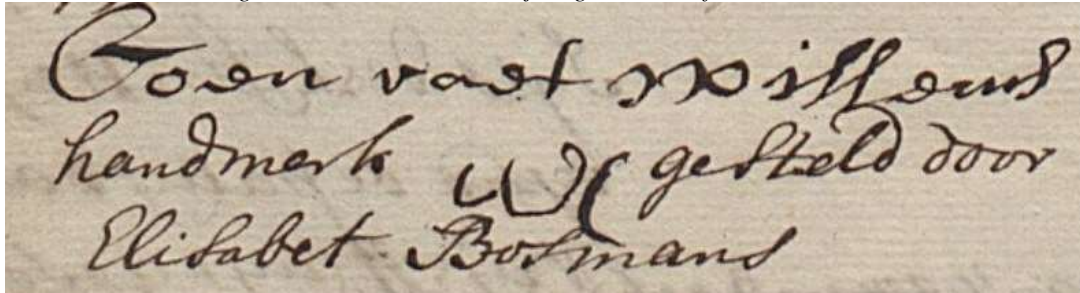 Coen raet Willems
handmerk gesteld door
Elisabet Bosmans